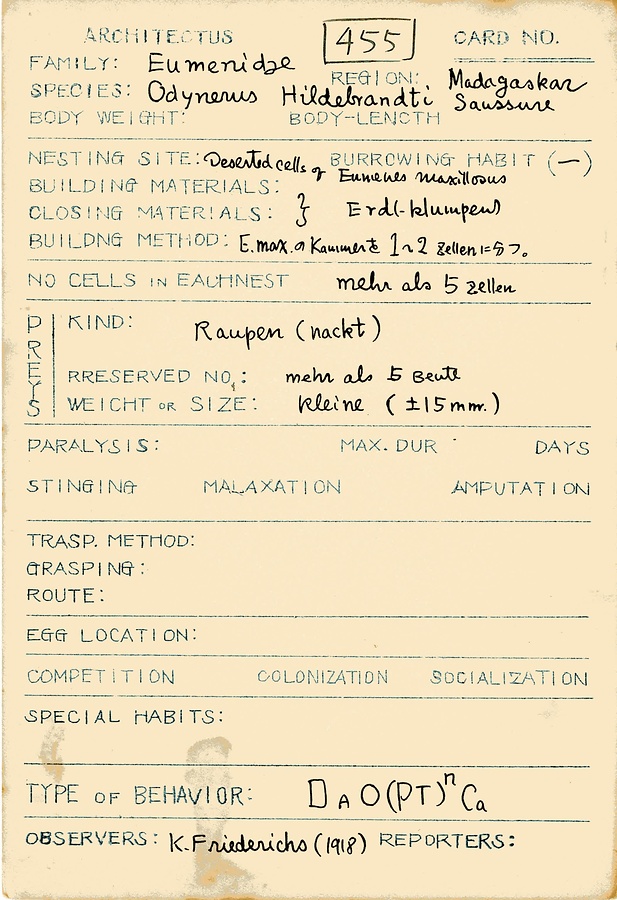 ARCHITECTUS 455 CARD NO.
FAMILY: Eumenidae
REGION: Madagaskar
SPECIES: Odynerus Hildebrandti Saussure
BODY WEIGHT: BODY-LENGTH
NESTING SITE: Deserted cells of Eumenes maxillosus BURROWING HABIT (—)
BUILDING MATERIALS:
CLOSING MATERIALS: } Erdl-klumpen
BUILDNG METHOD: E.max. a Kammert 1~2 zellen
NO CELLS IN EACHNEST mehr als 5 zellen
PREYS
KIND: Raupen (nackt)
RRESERVED NO.: mehr als 5 Beute
WEIGHT OR SIZE: Kleine (±15mm.)
PARALYSIS: MAX. DUR DAYS
STINGING MALAXATION AMPUTATION
TRASP. METHOD:
GRASPING:
ROUTE:
EGG LOCATION:
COMPETITION COLONIZATION SOCIALIZATION
SPECIAL HABITS:
TYPE OF BEHAVIOR: D A O(PT)ⁿ Ca
OBSERVERS: K. Friederichs (1918) REPORTERS: